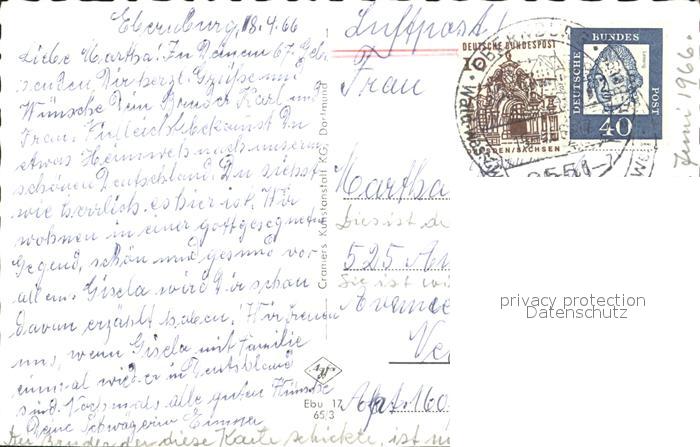 Ebernburg, 18.4.66
Liebe Martha! Zu Deinem 67. Geb.
senden Dir herzl. Grüße und
Wünsche Dein Bruder Karl und
Frau. Vielleicht bekommst Du
etwas Heimweh nach unserem
schönen Deutschland. Du siehst
wie herrlich es hier ist. Wir
wohnen in einer gottgesegneten
Gegend, schön und gesund vor
allem. Gisela wird Dir schon
davon erzählt haben. Wir freuen
uns, wenn Gisela mit Familie
einmal wieder in Deutschland
sind. Nochmals alle guten Wünsche
Deine Schwägerin Emma
Der Bruder der diese Karte schickte, ist
Cramers Kunstanstalt KG, Dortmund
Agfa
Ebu 17
65/3
Luftpost!
Frau
Martha
525
Avenue
Apt. 160
DEUTSCHE BUNDESPOST
10
EN/SACHSEN
DEUTSCHE BUNDESPOST
40
6551
Juni 1966.
privacy protection
Datenschutz